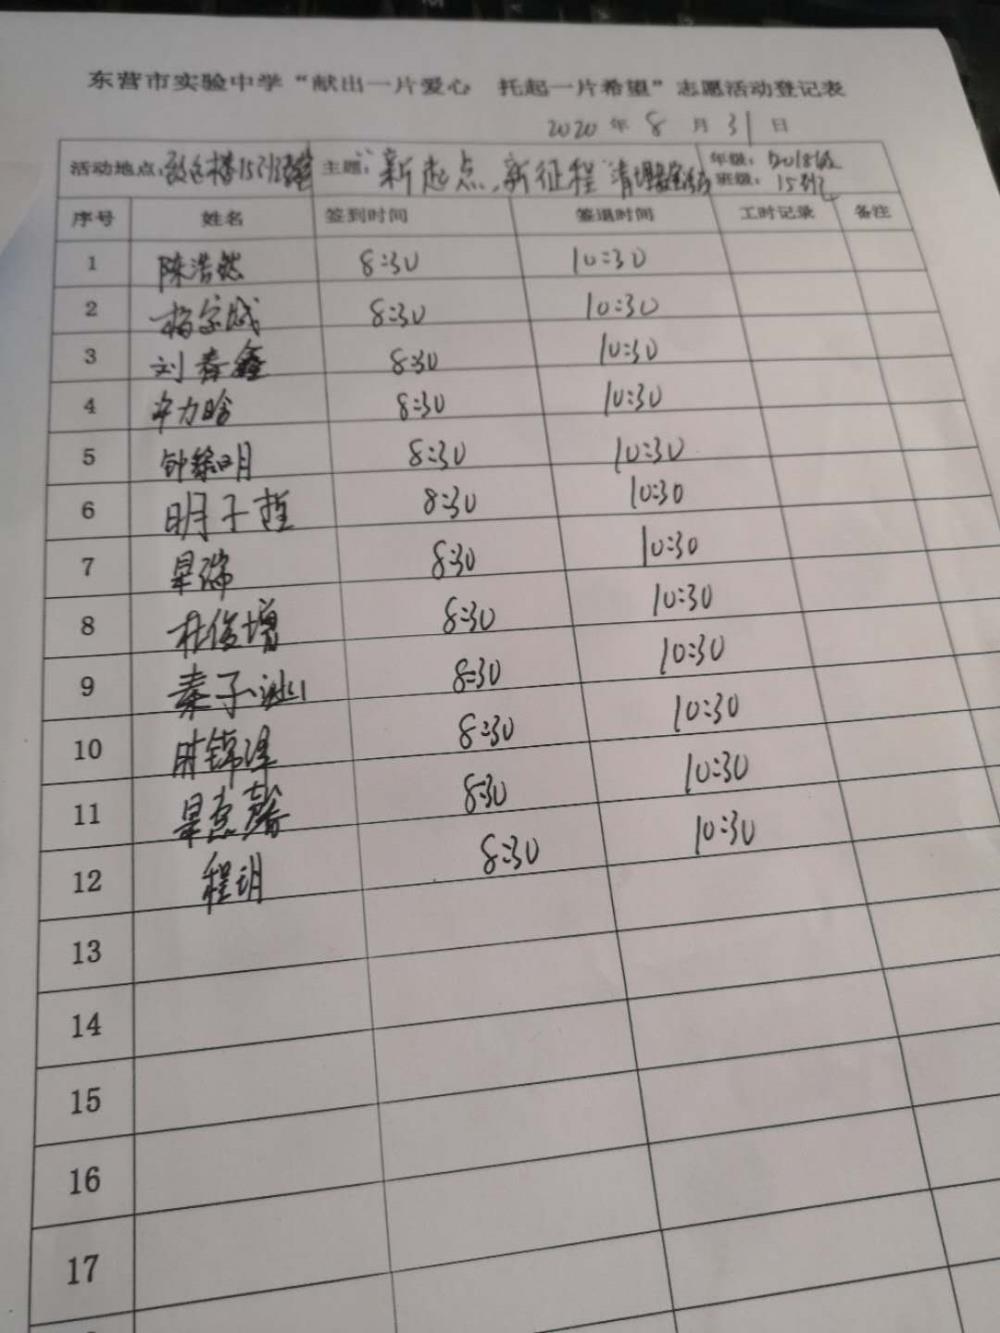 东营市实验中学“献出一片爱心 托起一片希望”志愿活动登记表
2020 年 8 月 31 日
活动地点: 15 主题: 新起点,新征程 清 年级: 2018级
班级: 15班
序号 姓名 签到时间 签退时间 工时记录 备注
1 陈浩然 8:30 10:30
2 杨宗成 8:30 10:30
3 刘春鑫 8:30 10:30
4 8:30 10:30
5 钟 明 8:30 10:30
6 明子哲 8:30 10:30
7 瑞 8:30 10:30
8 杜俊增 8:30 10:30
9 秦子 8:30 10:30
10 时锦泽 8:30 10:30
11 8:30 10:30
12 程玥 8:30 10:30
13
14
15
16
17